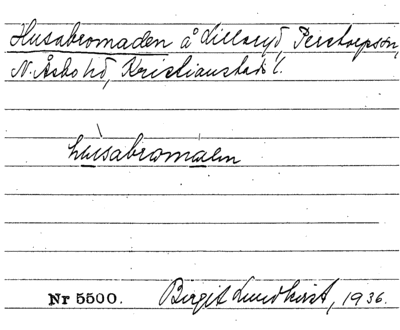 Husabromaden å Lillaryd, Perstorpssn,
N. Åsbo hd, Kristianstads l.
husabromaden
Nr 5500. Birgit Lundkvist, 1936.